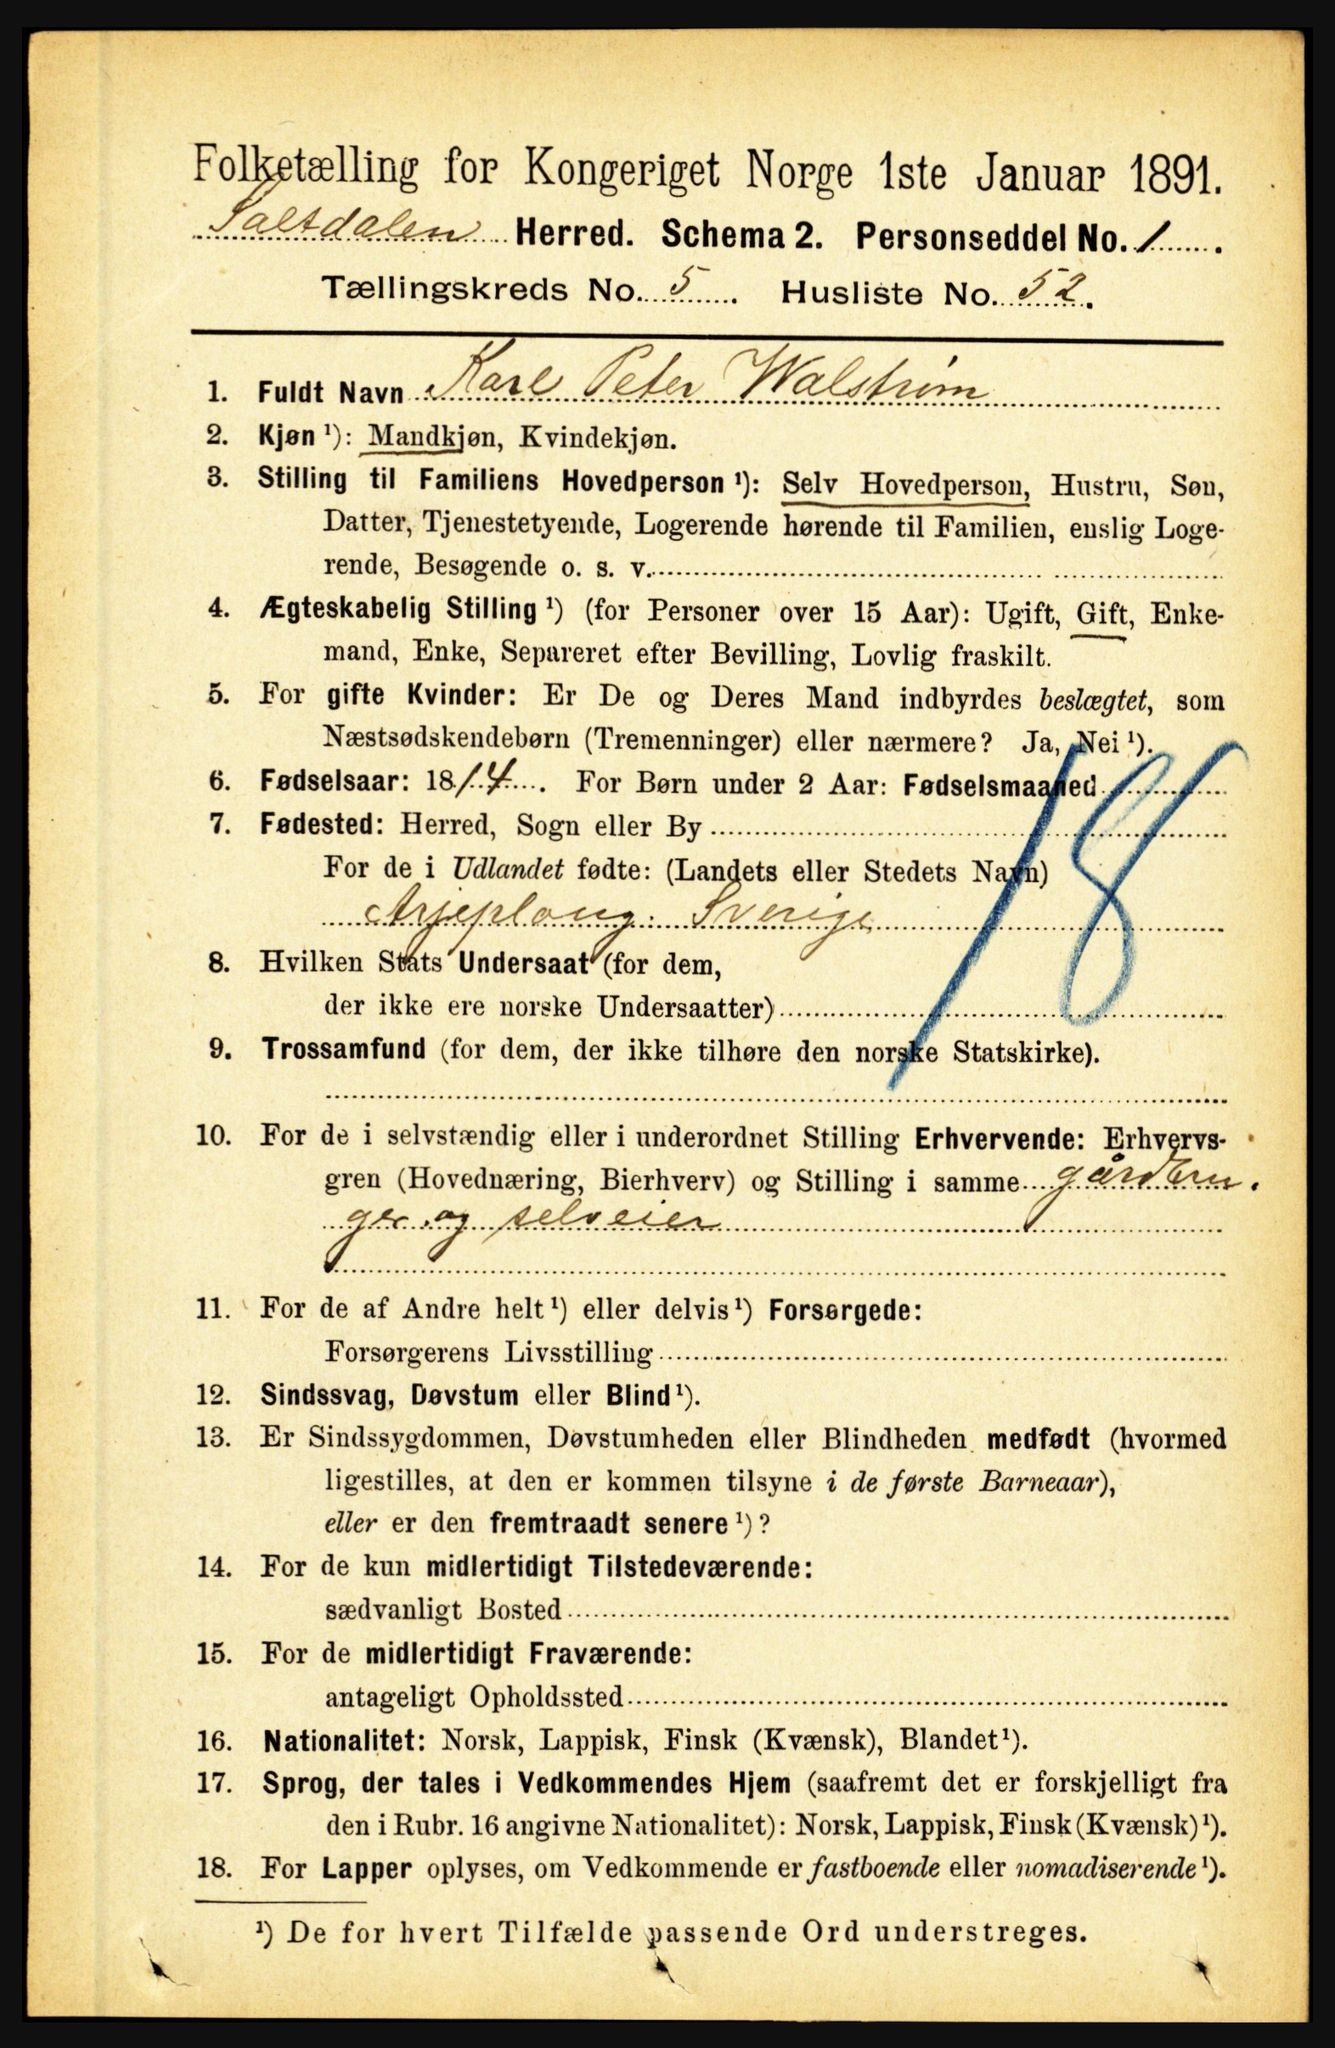 Folketælling for Kongeriget Norge 1ste Januar 1891.
Saltdalen Herred. Schema 2. Personseddel No. 1.
Tællingskreds No. 5. Husliste No. 52.
1. Fuldt Navn Karl Peter Walstrøm
2. Kjøn ¹): Mandkjøn, Kvindekjøn.
3. Stilling til Familiens Hovedperson ¹): Selv Hovedperson, Hustru, Søn,
Datter, Tjenestetyende, Logerende hørende til Familien, enslig Loge-
rende, Besøgende o. s. v.
4. Ægteskabelig Stilling ¹) (for Personer over 15 Aar): Ugift, Gift, Enke-
mand, Enke, Separeret efter Bevilling, Lovlig fraskilt.
5. For gifte Kvinder: Er De og Deres Mand indbyrdes beslægtet, som
Næstsødskendebørn (Tremenninger) eller nærmere? Ja, Nei ¹).
6. Fødselsaar: 1814. For Børn under 2 Aar: Fødselsmaaned
7. Fødested: Herred, Sogn eller By
For de i Udlandet fødte: (Landets eller Stedets Navn)
Arjeploug. Sverige
18
8. Hvilken Stats Undersaat (for dem,
der ikke ere norske Undersaatter)
9. Trossamfund (for dem, der ikke tilhøre den norske Statskirke).
10. For de i selvstændig eller i underordnet Stilling Erhvervende: Erhvervs-
gren (Hovednæring, Bierhverv) og Stilling i samme gårdbru-
ger og selveier
11. For de af Andre helt ¹) eller delvis ¹) Forsørgede:
Forsørgerens Livsstilling
12. Sindssvag, Døvstum eller Blind ¹).
13. Er Sindssygdommen, Døvstumheden eller Blindheden medfødt (hvormed
ligestilles, at den er kommen tilsyne i de første Barneaar),
eller er den fremtraadt senere ¹)?
14. For de kun midlertidigt Tilstedeværende:
sædvanligt Bosted
15. For de midlertidigt Fraværende:
antageligt Opholdssted
16. Nationalitet: Norsk, Lappisk, Finsk (Kvænsk), Blandet ¹).
17. Sprog, der tales i Vedkommendes Hjem (saafremt det er forskjelligt fra
den i Rubr. 16 angivne Nationalitet): Norsk, Lappisk, Finsk (Kvænsk) ¹).
18. For Lapper oplyses, om Vedkommende er fastboende eller nomadiserende ¹).
¹) De for hvert Tilfælde passende Ord understreges.